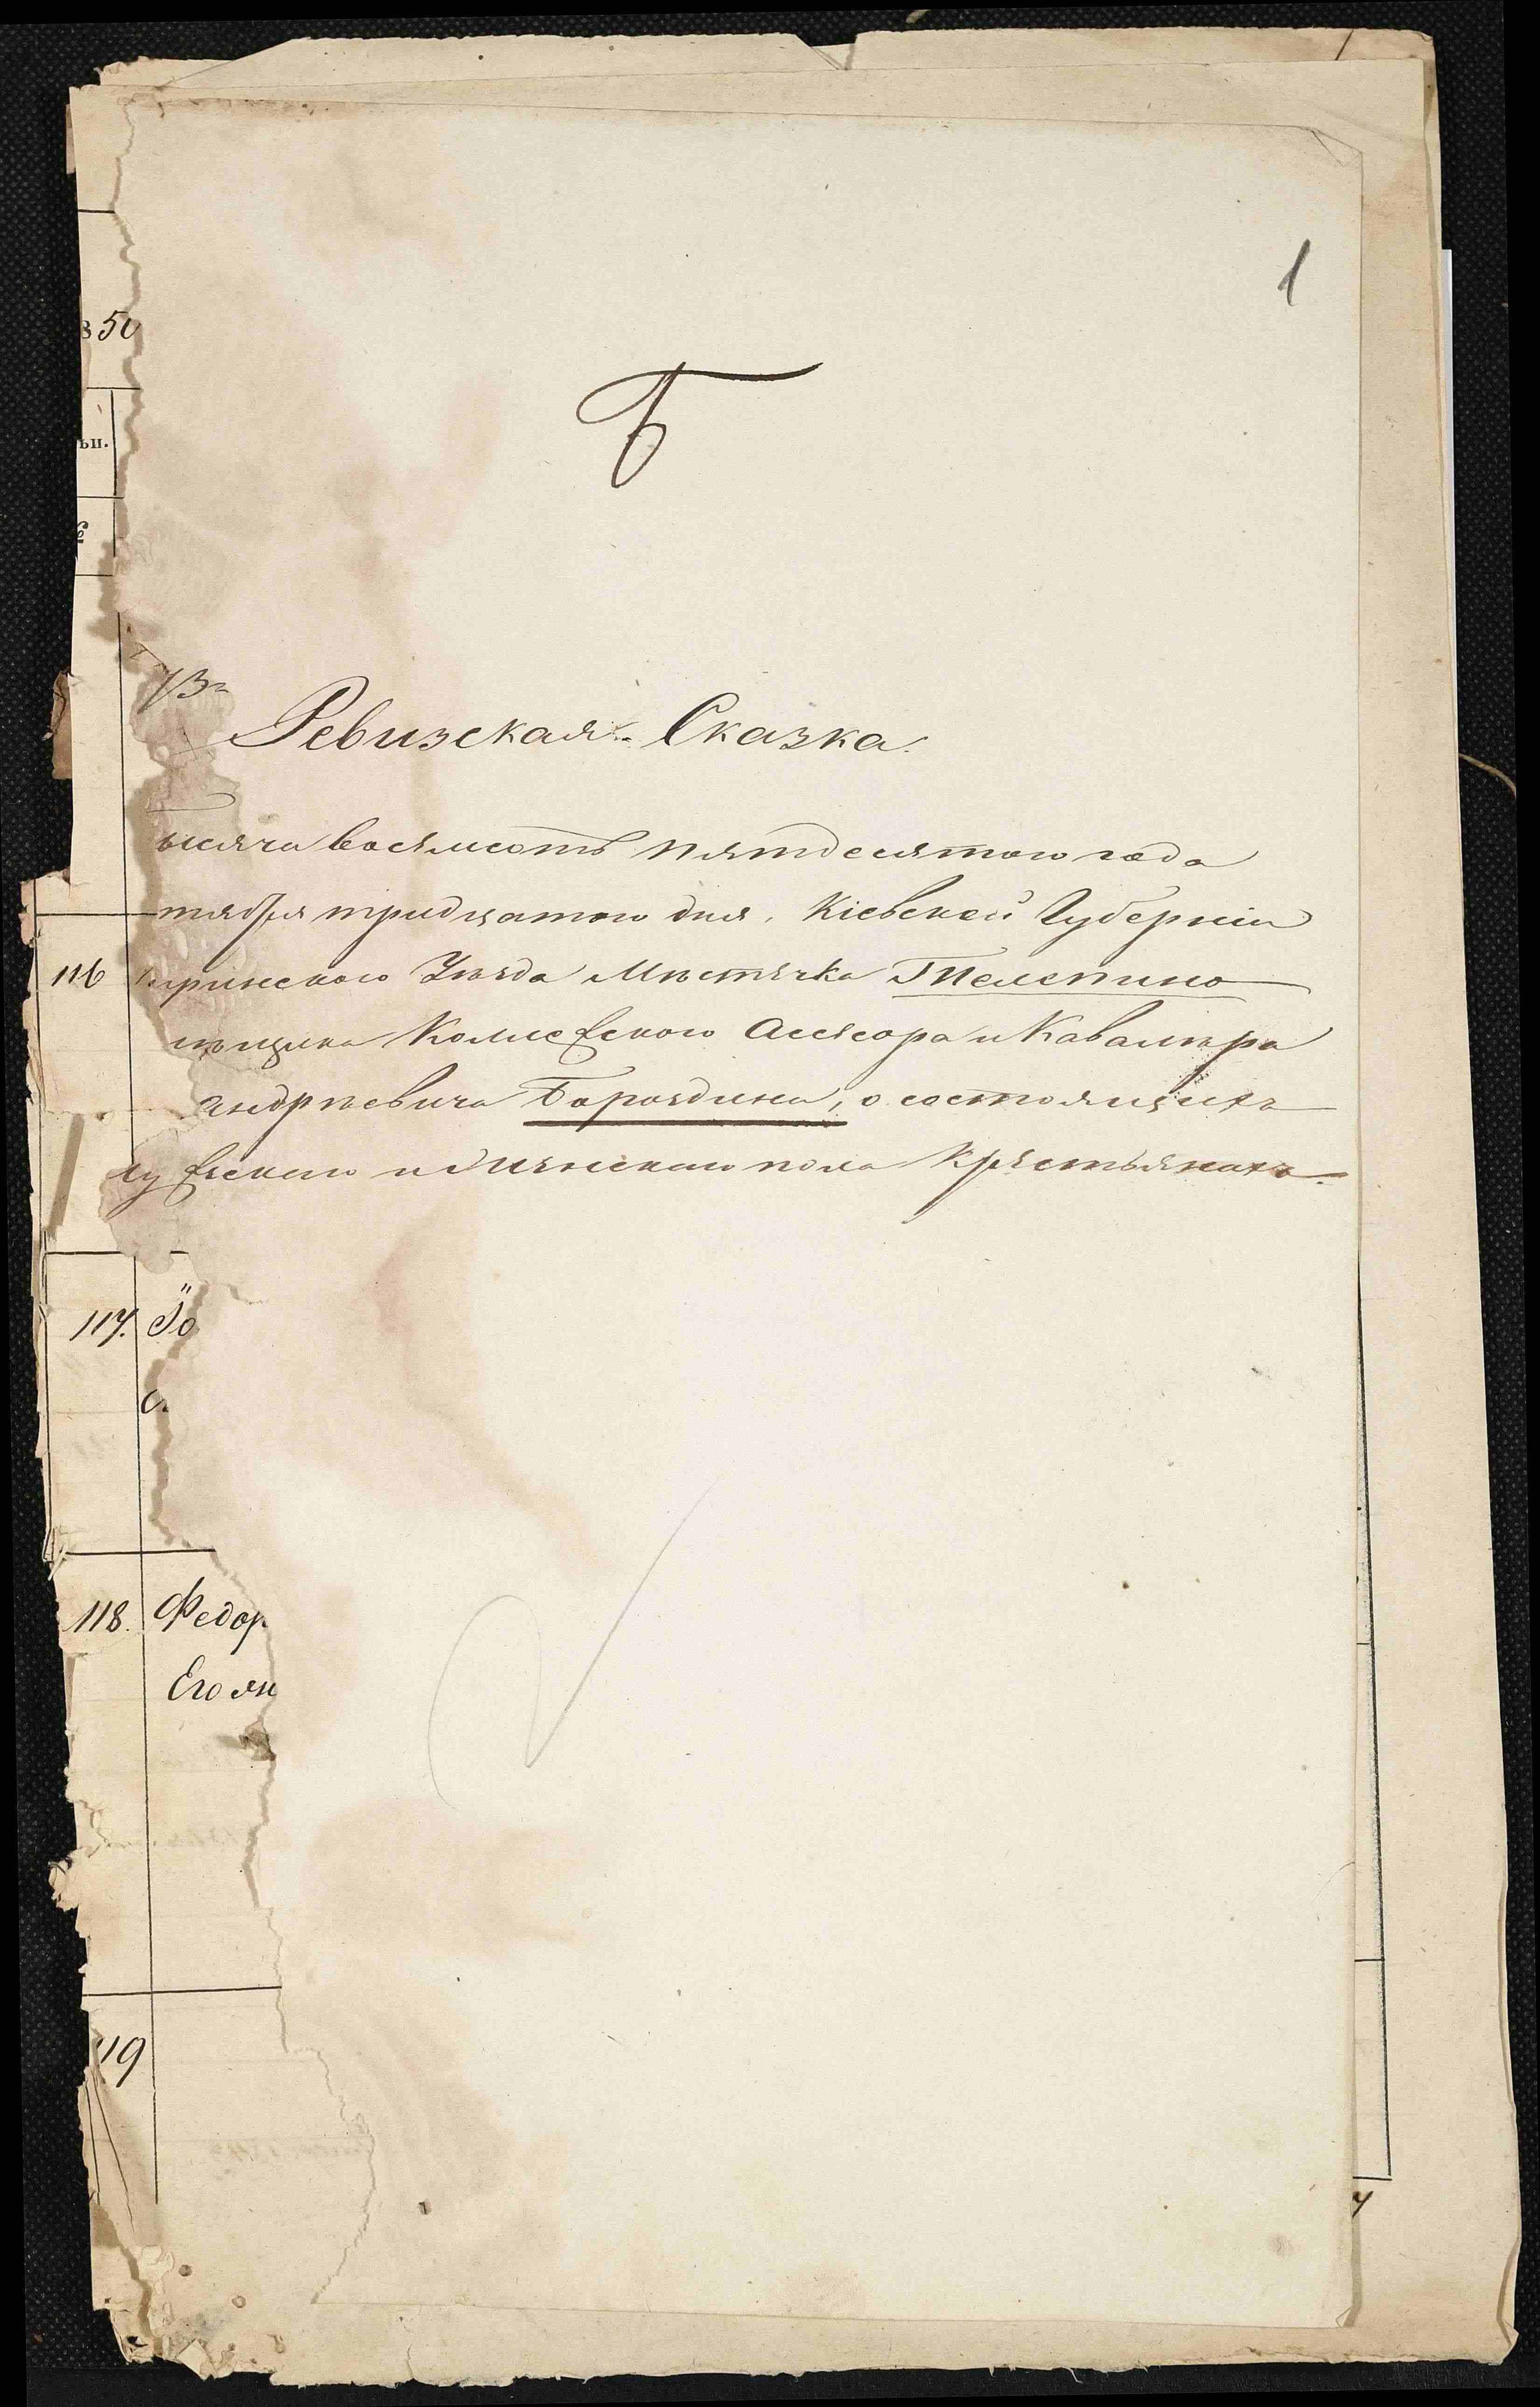 1
Б
850
ьи.
№
Ревизская Сказка
ысяча восемсотъ пятдесятого года
тября тридцатого дня, Кіевской Губерніи
116
иринского Уѣзда Мѣстечка Телепино
ѣщика Колежского Ассесора и Кавалѣра
Андрѣевича Бороздина, о состоящихъ
мужескаго и женскаго пола крестьянахъ.
117.
118. Федор
Его
119